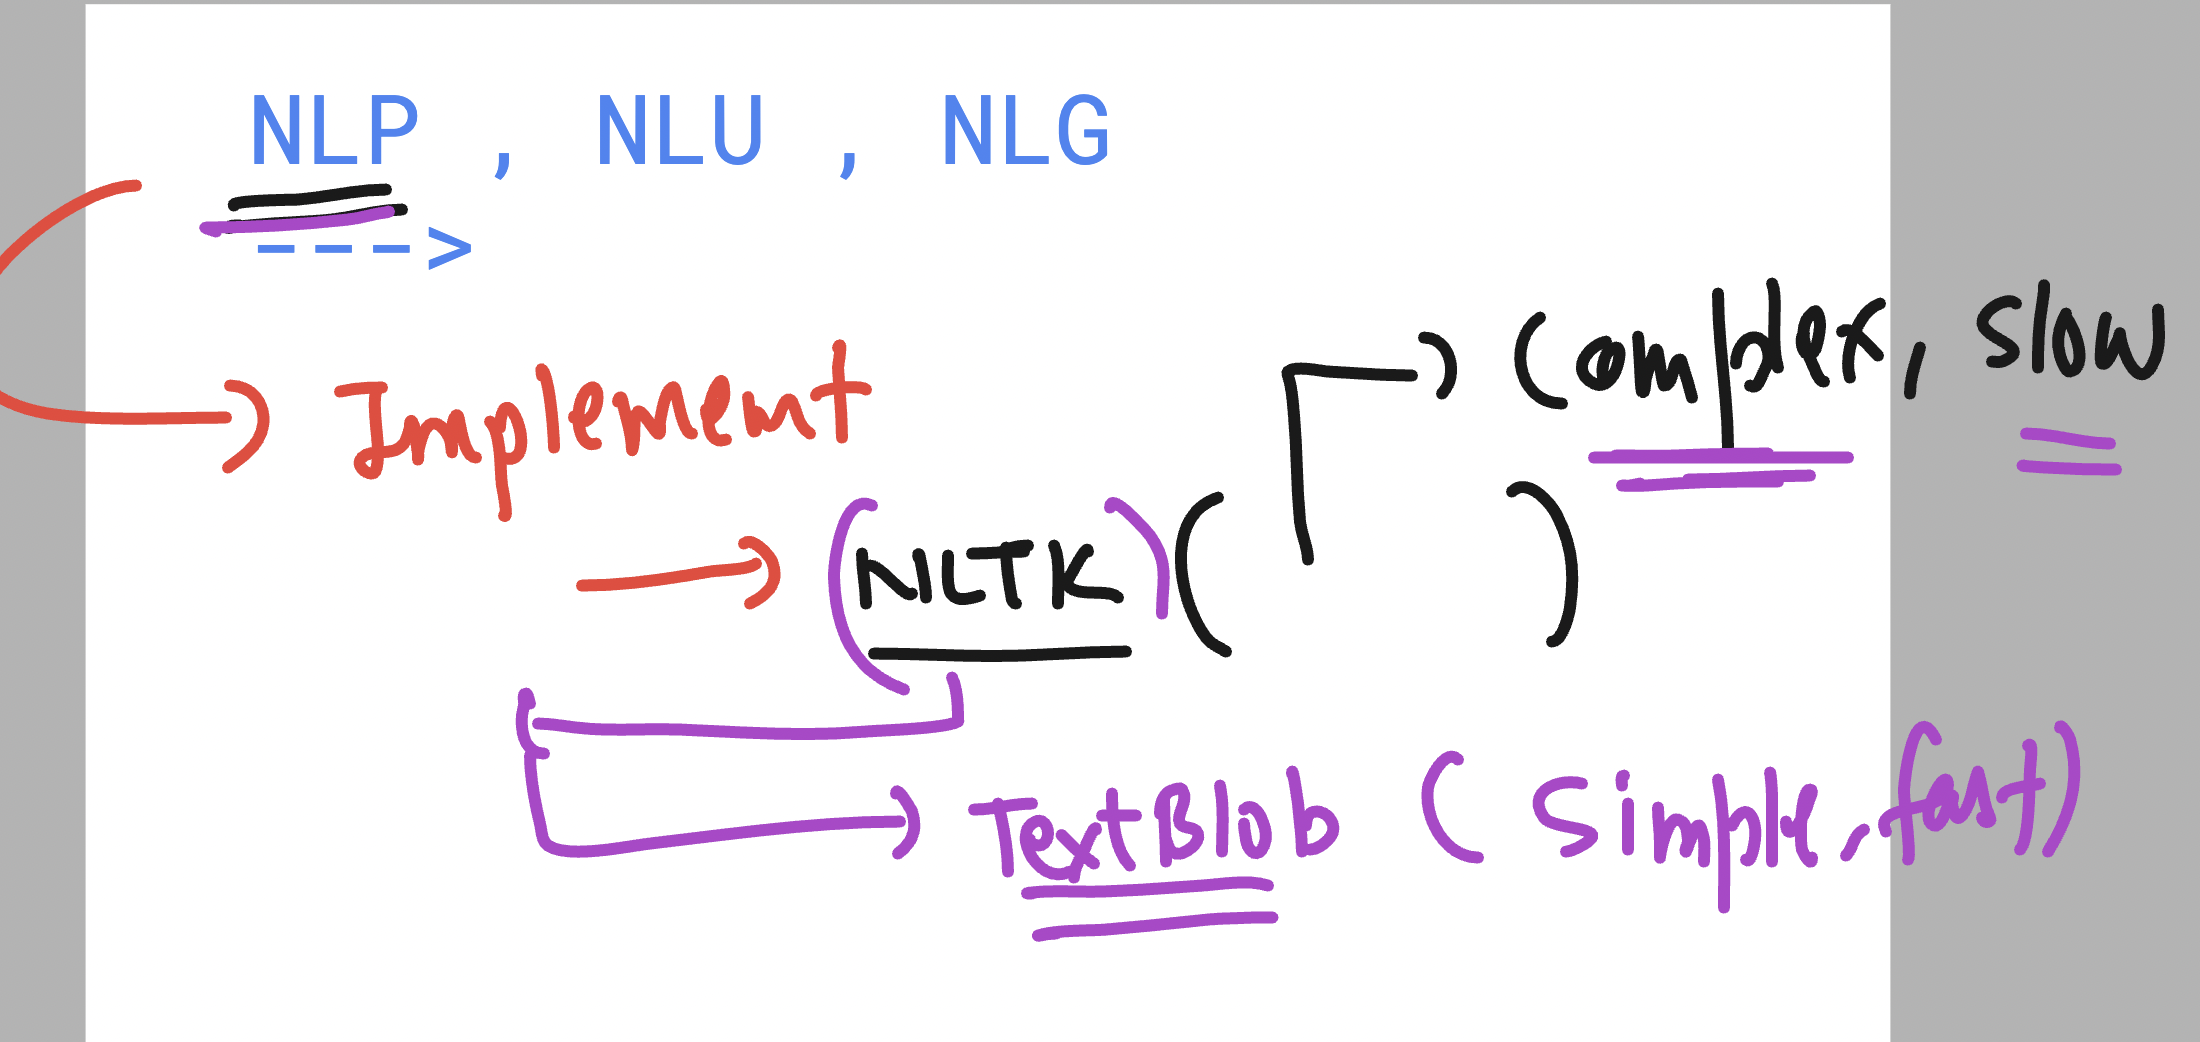 NLP , NLU , NLG
--->
Implement
Complex, slow
(NLTK) ( )
TextBlob (Simple, fast)